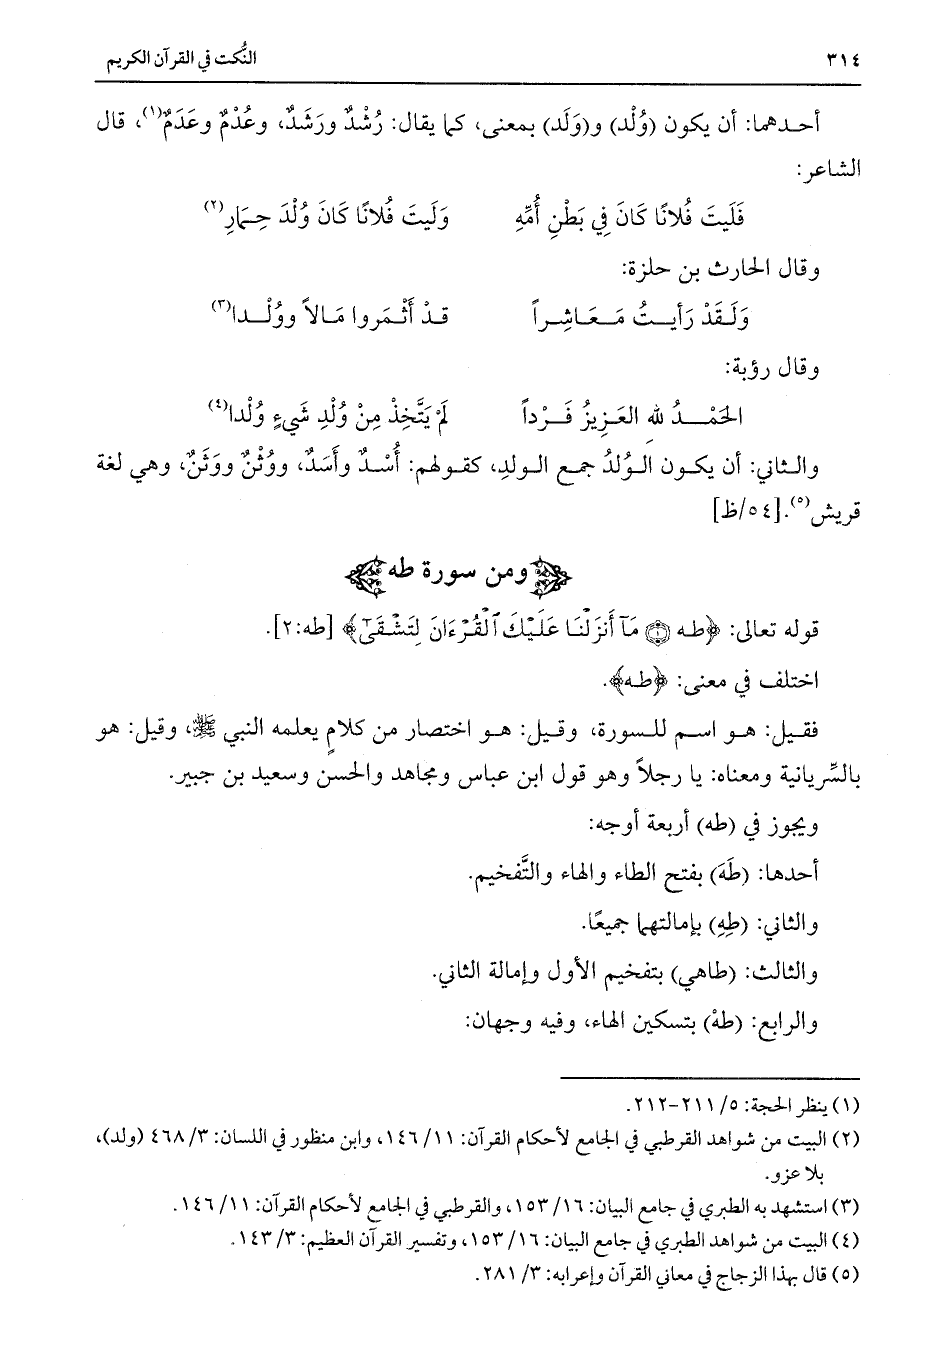 ٣١٤ النُّكت في القرآن الكريم
أحدهما: أن يكون (وُلْد) و(وَلَد) بمعنى، كما يقال: رُشْدٌ ورَشَدٌ، وعُدْمٌ وعَدَمٌ(١)، قال
الشاعر:
فَلَيتَ فُلانًا كَانَ فِي بَطْنِ أُمِّهِ وَلَيتَ فُلانًا كَانَ وُلْدَ حِمَارِ(٢)
وقال الحارث بن حلزة:
وَلَقَدْ رَأيتُ مَعَاشِراً قدْ أَثْمَروا مَالاً ووُلْدا(٣)
وقال رؤبة:
الحَمْدُ للهِ العَزِيزُ فَرْداً لَمْ يَتَّخِذْ مِنْ وُلْدِ شَيءٍ وُلْدا(٤)
والثاني: أن يكون الوُلدُ جمع الولدِ، كقولهم: أُسْدٌ وأَسَدٌ، ووُثْنٌ ووَثَنٌ، وهي لغة
قريش(٥). [٥٤/ظ]
ومن سورة طه
قوله تعالى: ﴿طه ۝١ مَآ أَنزَلْنَا عَلَيْكَ ٱلْقُرْءَانَ لِتَشْقَىٰٓ﴾ [طه:٢].
اختلف في معنى: ﴿طه﴾.
فقيل: هو اسم للسورة، وقيل: هو اختصار من كلامٍ يعلمه النبي ﷺ، وقيل: هو
بالسِّريانية ومعناه: يا رجلاً وهو قول ابن عباس ومجاهد والحسن وسعيد بن جبير.
ويجوز في (طه) أربعة أوجه:
أحدها: (طَهَ) بفتح الطاء والهاء والتَّفخيم.
والثاني: (طِهِ) بإمالتهما جميعًا.
والثالث: (طاهي) بتفخيم الأول وإمالة الثاني.
والرابع: (طهْ) بتسكين الهاء، وفيه وجهان:
(١) ينظر الحجة: ٥/ ٢١١-٢١٢.
(٢) البيت من شواهد القرطبي في الجامع لأحكام القرآن: ١١/ ١٤٦، وابن منظور في اللسان: ٣/ ٤٦٨ (ولد)،
بلا عزو.
(٣) استشهد به الطبري في جامع البيان: ١٦/ ١٥٣، والقرطبي في الجامع لأحكام القرآن: ١١/ ١٤٦.
(٤) البيت من شواهد الطبري في جامع البيان: ١٦/ ١٥٣، وتفسير القرآن العظيم: ٣/ ١٤٣.
(٥) قال بهذا الزجاج في معاني القرآن وإعرابه: ٣/ ٢٨١.